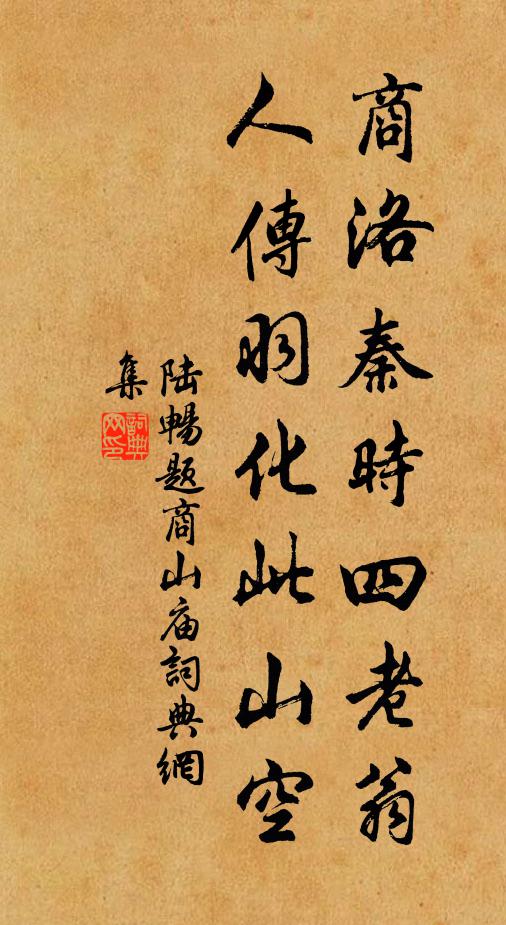 商洛秦時四老翁
人傳羽化此山空
陆暢題商山庙詞典網
集
詞典网印